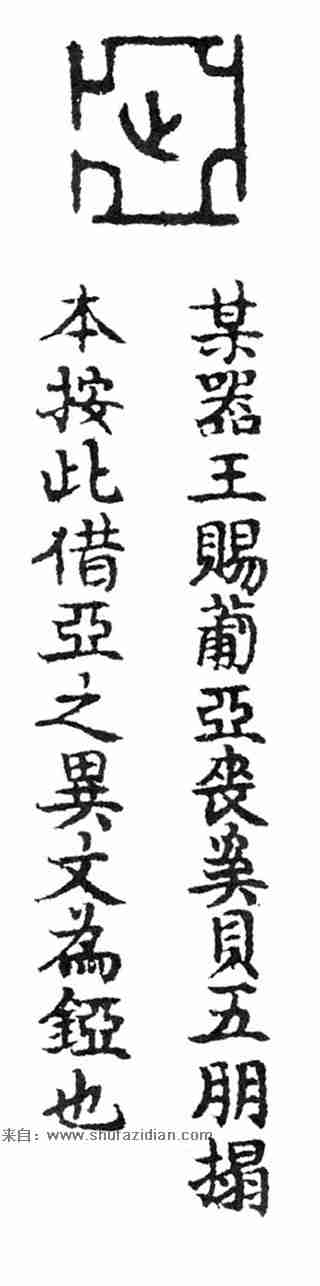 某器王賜葡亞喪奚貝五朋搨
本按此借亞之異文為錏也
来自：www.shufazidian.com